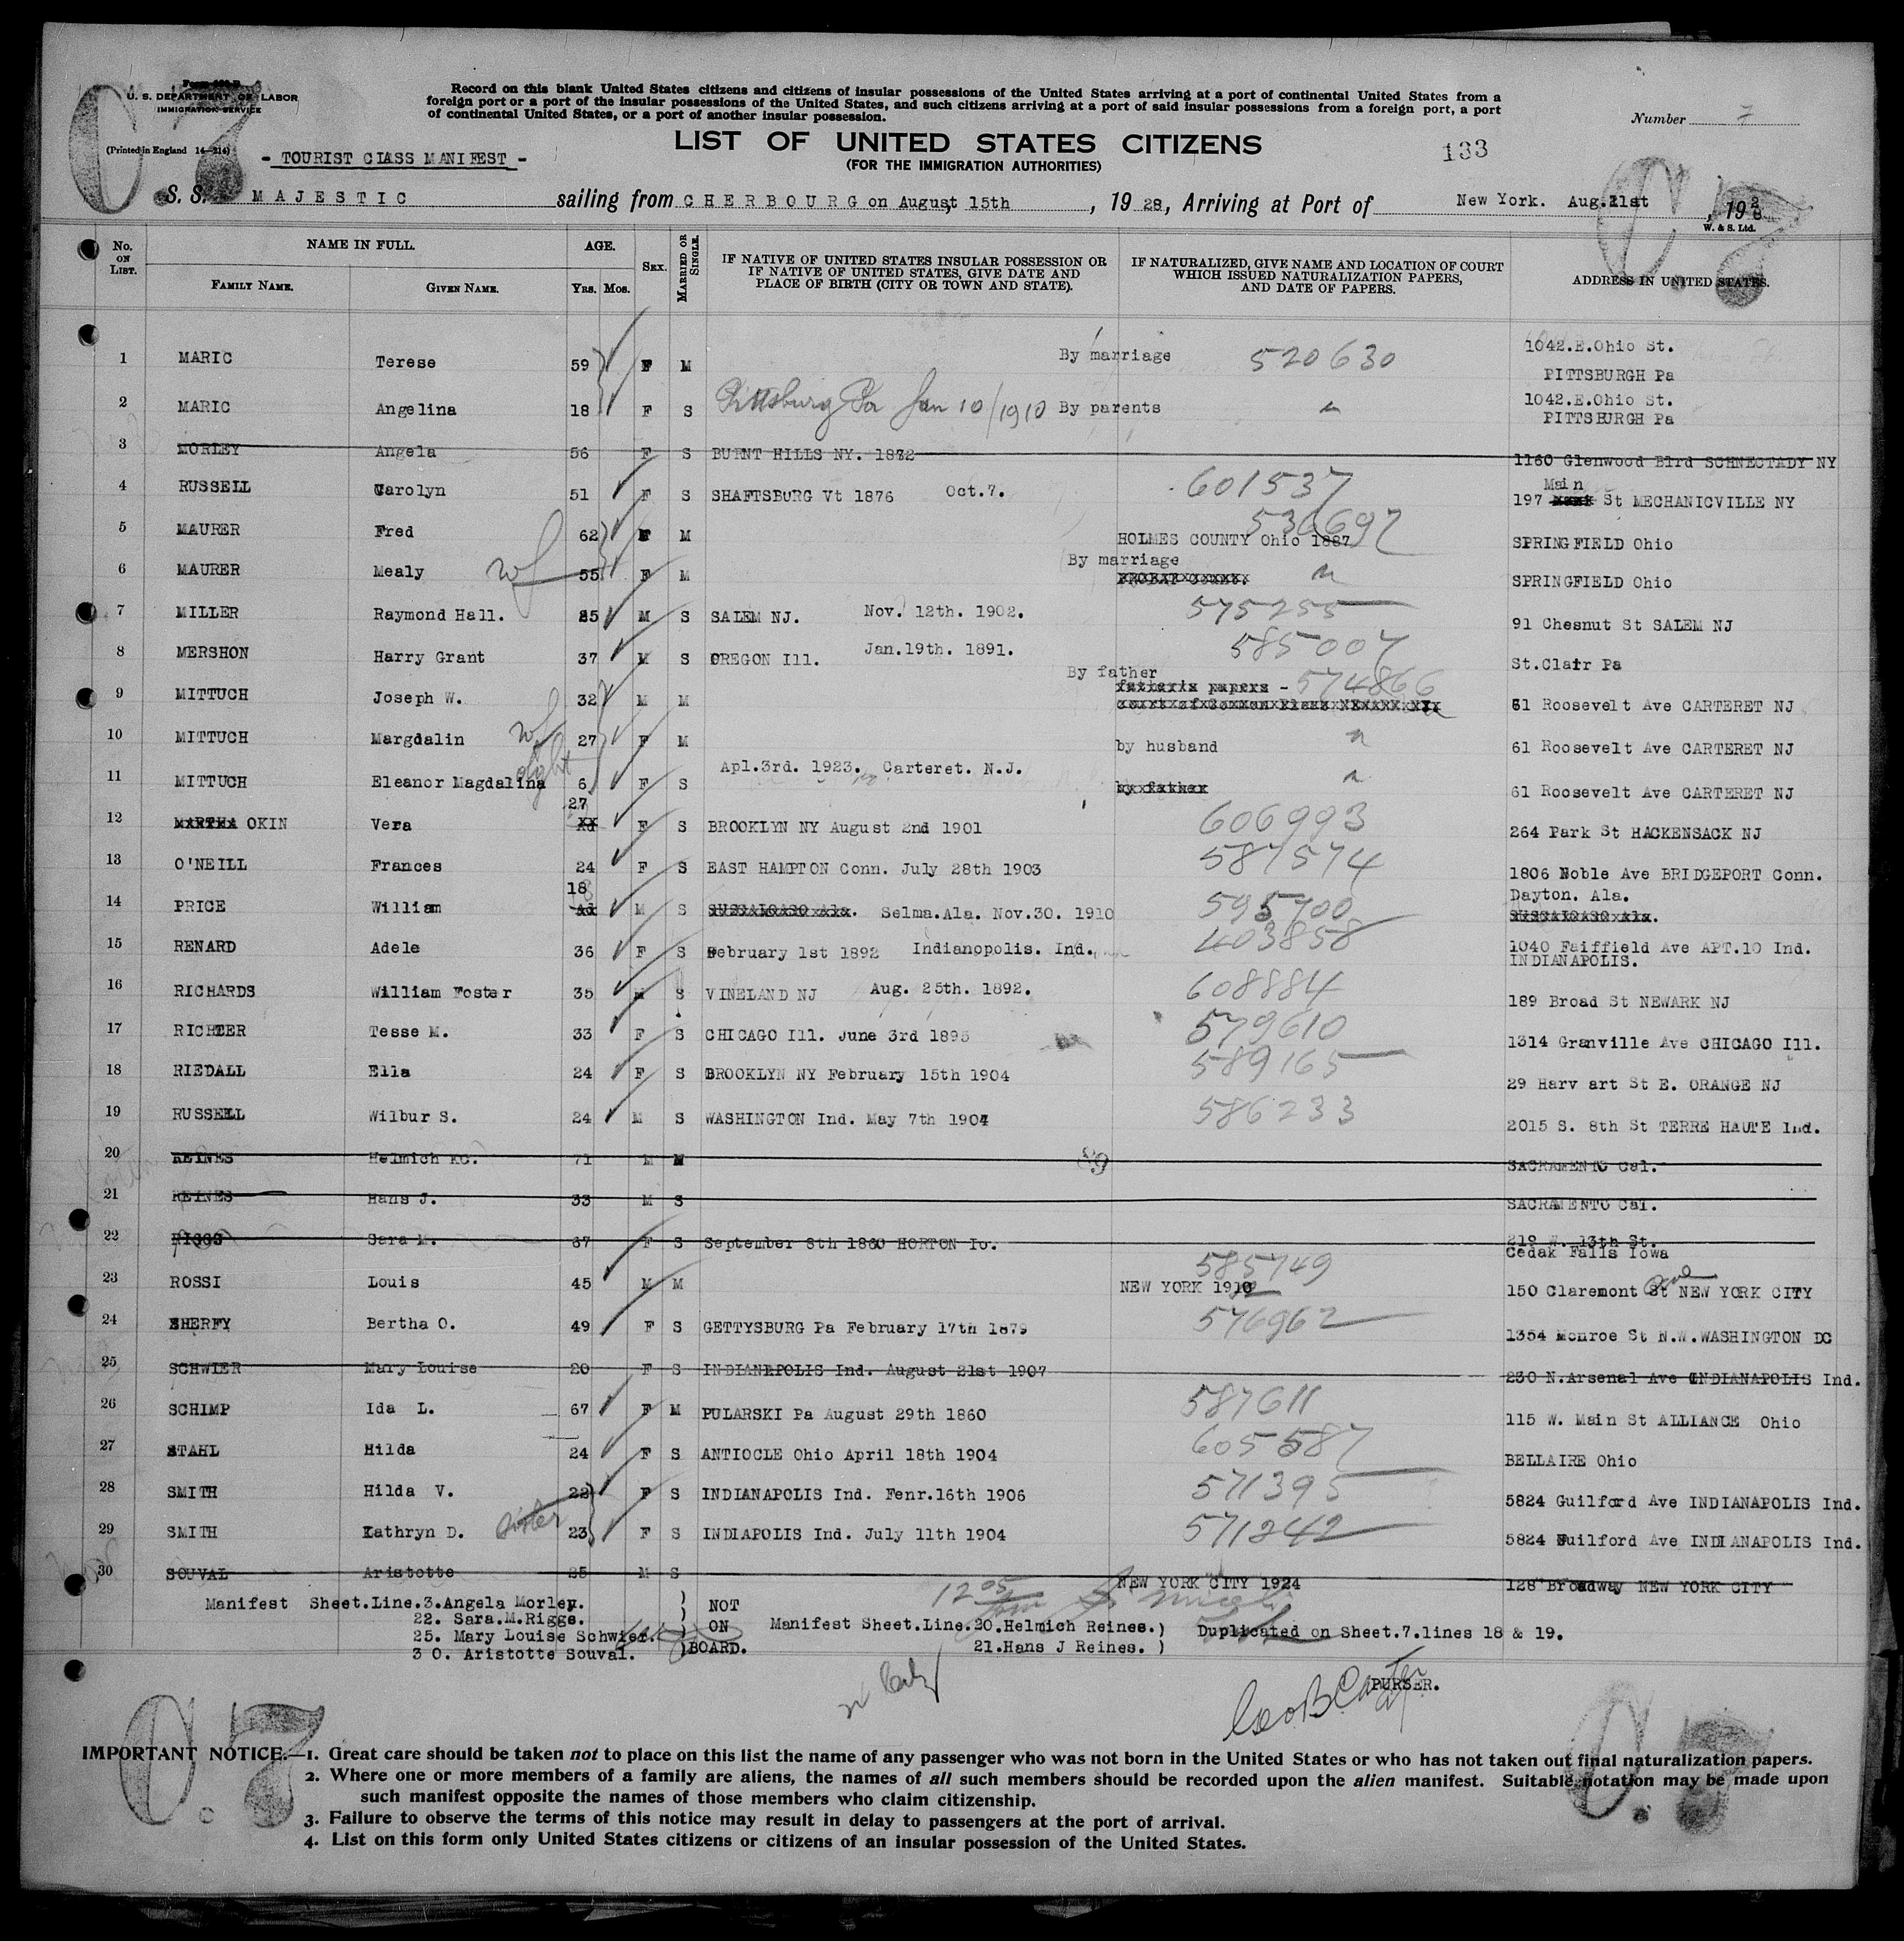 Form 630 B
U. S. DEPARTMENT OF LABOR
IMMIGRATION SERVICE
(Printed in England 14—214)
Record on this blank United States citizens and citizens of insular possessions of the United States arriving at a port of continental United States from a
foreign port or a port of the insular possessions of the United States, and such citizens arriving at a port of said insular possessions from a foreign port, a port
of continental United States, or a port of another insular possession.
Number 7
LIST OF UNITED STATES CITIZENS
(FOR THE IMMIGRATION AUTHORITIES)
133
- TOURIST CLASS MANIFEST -
S. S. MAJESTIC sailing from CHERBOURG on August 15th, 1928, Arriving at Port of New York. Aug. 21st, 1928
W. & S. Ltd.
No. ON LIST. NAME IN FULL. AGE. SEX. MARRIED OR SINGLE. IF NATIVE OF UNITED STATES INSULAR POSSESSION OR IF NATIVE OF UNITED STATES, GIVE DATE AND PLACE OF BIRTH (CITY OR TOWN AND STATE). IF NATURALIZED, GIVE NAME AND LOCATION OF COURT WHICH ISSUED NATURALIZATION PAPERS, AND DATE OF PAPERS. ADDRESS IN UNITED STATES.
FAMILY NAME. GIVEN NAME. YRS. MOS.
1 MARIC Terese 59 F M By marriage 520630 1042.E.Ohio St. PITTSBURGH Pa
2 MARIC Angelina 18 F S Pittsburg Pa Jan 10/1910 By parents " 1042.E.Ohio St. PITTSBURGH Pa
3 MORLEY Angela 56 F S BURNT HILLS NY. 1872 1160 Glenwood Blrd SCHNECTADY NY
4 RUSSELL Carolyn 51 F S SHAFTSBURG Vt 1876 Oct.7. 601537 197 Main St MECHANICVILLE NY
5 MAURER Fred 62 M M 536697 HOLMES COUNTY Ohio 1887 SPRINGFIELD Ohio
6 MAURER Mealy wf 55 F M By marriage " SPRINGFIELD Ohio
7 MILLER Raymond Hall. 25 M S SALEM NJ. Nov. 12th. 1902. 575255 91 Chesnut St SALEM NJ
8 MERSHON Harry Grant 37 M S OREGON Ill. Jan.19th. 1891. 585007 St.Clair Pa
9 MITTUCH Joseph W. 32 M M By father 574866 61 Roosevelt Ave CARTERET NJ
10 MITTUCH Margdalin wf 27 F M by husband " 61 Roosevelt Ave CARTERET NJ
11 MITTUCH Eleanor Magdalina dght 6 F S Apl.3rd. 1923. Carteret. N.J. by father " 61 Roosevelt Ave CARTERET NJ
12 MARTHA OKIN Vera 27 F S BROOKLYN NY August 2nd 1901 606993 264 Park St HACKENSACK NJ
13 O'NEILL Frances 24 F S EAST HAMPTON Conn. July 28th 1903 587574 1806 Noble Ave BRIDGEPORT Conn.
14 PRICE William 18 M S Selma.Ala. Nov.30. 1910 595700 Dayton. Ala.
15 RENARD Adele 36 F S February 1st 1892 Indianopolis. Ind. 403858 1040 Faiffield Ave APT.10 Ind. INDIANAPOLIS.
16 RICHARDS William Foster 35 M S VINELAND NJ Aug. 25th. 1892. 608884 189 Broad St NEWARK NJ
17 RICHTER Tesse M. 33 F S CHICAGO Ill. June 3rd 1895 579610 1314 Granville Ave CHICAGO Ill.
18 RIEDALL Ella 24 F S BROOKLYN NY February 15th 1904 589165 29 Harv art St E. ORANGE NJ
19 RUSSELL Wilbur S. 24 M S WASHINGTON Ind. May 7th 1904 586233 2015 S. 8th St TERRE HAUTE Ind.
20 REINES Helmich KC. 71 M M SACRAMENTO Cal.
21 REINES Hans J. 33 M S SACRAMENTO Cal.
22 RIGGS Sara M. 67 F S September 8th 1860 HORTON Io. 219 W. 13th St. Cedak Falls Iowa
23 ROSSI Louis 45 M M 585749 NEW YORK 1912 150 Claremont St Ave NEW YORK CITY
24 SHERFY Bertha O. 49 F S GETTYSBURG Pa February 17th 1879 576962 1354 Monroe St N.W.WASHINGTON DC
25 SCHWIER Mary Louise 20 F S INDIANAPOLIS Ind. August 21st 1907 230 N.Arsenal Ave INDIANAPOLIS Ind.
26 SCHIMP Ida L. 67 F M PULARSKI Pa August 29th 1860 587611 115 W. Main St ALLIANCE Ohio
27 STAHL Hilda 24 F S ANTIOCLE Ohio April 18th 1904 605587 BELLAIRE Ohio
28 SMITH Hilda V. 22 F S INDIANAPOLIS Ind. Fenr.16th 1906 571395 5824 Guilford Ave INDIANAPOLIS Ind.
29 SMITH Kathryn D. sister 23 F S INDIAPOLIS Ind. July 11th 1904 571242 5824 Guilford Ave INDIANAPOLIS Ind.
30 SOUVAL Aristotte 25 M S NEW YORK CITY 1924 128 Broadway NEW YORK CITY
Manifest Sheet.Line.3.Angela Morley. ) NOT
22. Sara.M.Riggs. ) ON Manifest Sheet.Line.20.Helmich Reines.) Duplicated on Sheet.7.lines 18 & 19.
25. Mary Louise Schwier. )
30. Aristotte Souval. )BOARD. 21.Hans J Reines. )
Geo B Carter
PURSER.
IMPORTANT NOTICE.—1. Great care should be taken not to place on this list the name of any passenger who was not born in the United States or who has not taken out final naturalization papers.
2. Where one or more members of a family are aliens, the names of all such members should be recorded upon the alien manifest. Suitable notation may be made upon
such manifest opposite the names of those members who claim citizenship.
3. Failure to observe the terms of this notice may result in delay to passengers at the port of arrival.
4. List on this form only United States citizens or citizens of an insular possession of the United States.